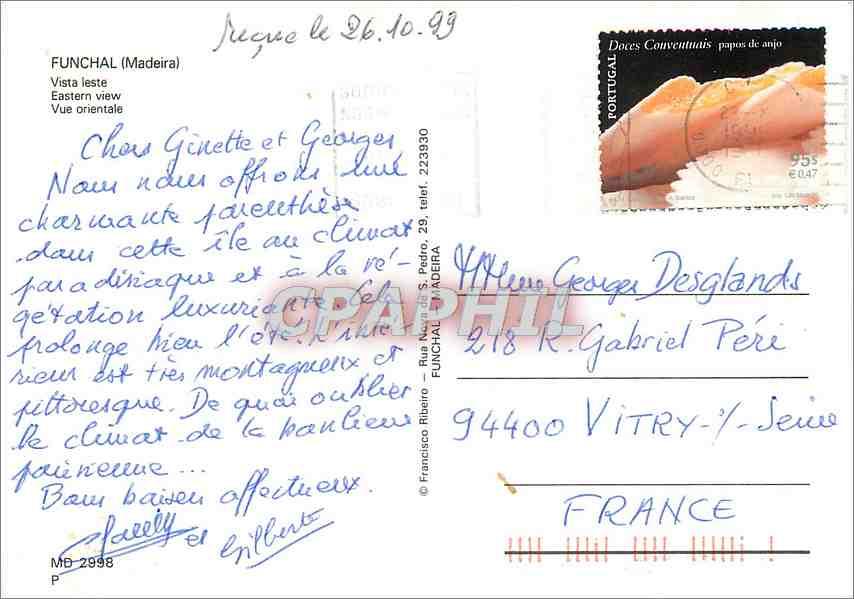 Reçue le 26.10.99
FUNCHAL (Madeira)
Vista leste
Eastern view
Vue orientale
Chers Ginette et Georges
Nous nous offrons une
charmante parenthèse
dans cette île au climat
paradisiaque et à la vé-
gétation luxuriante. Cela
prolonge bien l'été. L'inté-
rieur est très montagneux et
pittoresque. De quoi oublier
le climat de la banlieue
parisienne ...
Bons baisers affectueux.
et Gilberte
MD 2998
P
© Francisco Ribeiro — Rua Nova de S. Pedro, 29, telef. 223930
FUNCHAL - MADEIRA
Doces Conventuais papos de anjo
PORTUGAL
95$
€ 0,47
CPAPHIL!
MMme Georges Desglands
218 R. Gabriel Péri
94400 VITRY-s/-Seine
FRANCE